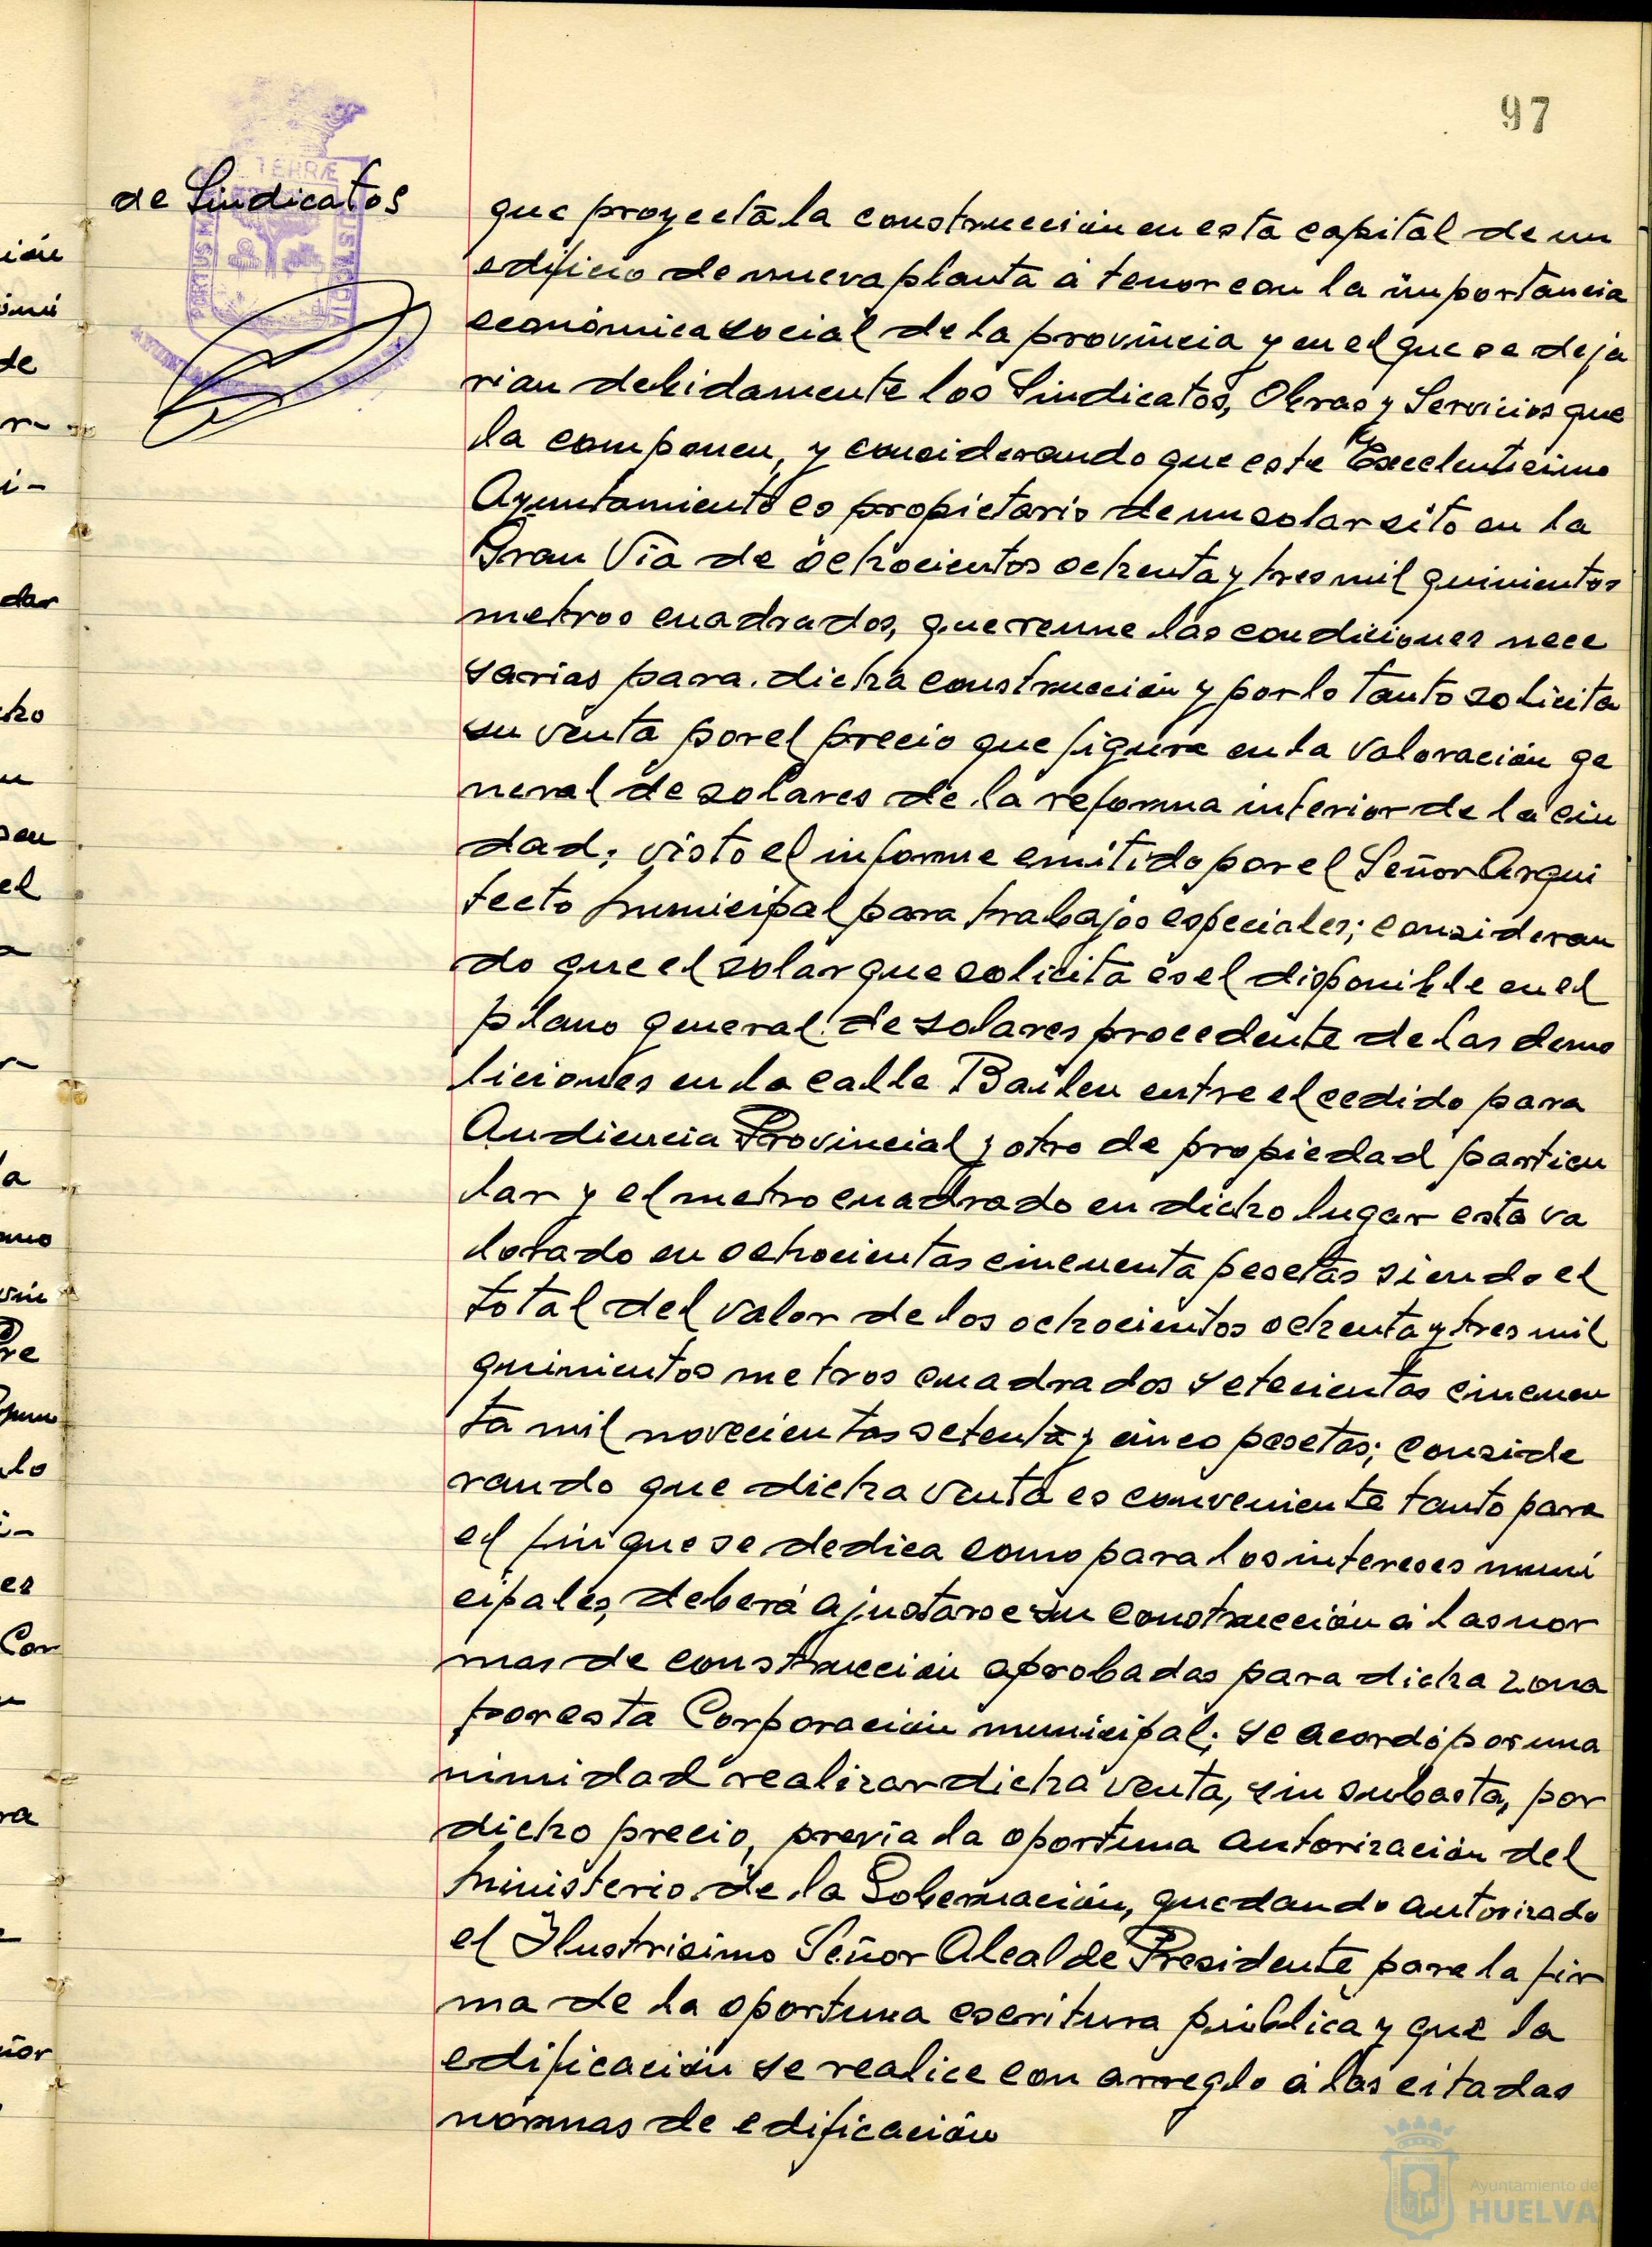 97
de Sindicatos
TERRÆ
PORTUS M
CUSTODIA
que proyecta la construccion en esta capital de un
edificio de nueva planta a tenor con la importancia
económica social de la provincia y en el que se deja
rian debidamente los Sindicatos, Obras y Servicios que
la componen, y considerando que este Excelentisimo
Ayuntamiento es propietario de un solar sito en la
Gran Vía de ochocientos ochenta y tres mil quinientos
metros cuadrados, que reune las condiciones nece
sarias para dicha construcción y por lo tanto solicita
su venta por el precio que figura en la valoración ge
neral de solares de la reforma interior de la ciu
dad; visto el informe emitido por el Señor Arqui
tecto Municipal para trabajos especiales; consideran
do que el solar que solicita es el disponible en el
plano general de solares procedente de las demo
liciones en la calle Bailen entre el cedido para
Audiencia Provincial y otro de propiedad particu
lar y el metro cuadrado en dicho lugar esta va
lorado en ochocientas cincuenta pesetas siendo el
total del valor de los ochocientos ochenta y tres mil
quinientos metros cuadrados setecientas cincuen
ta mil novecientas setenta y cinco pesetas; conside
rando que dicha venta es conveniente tanto para
el fin que se dedica como para los intereses muni
cipales, deberá ajustarse su construcción á las nor
mas de construcción aprobadas para dicha zona
por esta Corporación municipal; se acordó por una
nimidad realizar dicha venta, sin subasta, por
dicho precio, previa la oportuna autorización del
Ministerio de la Gobernación, quedando autorizado
el Ilustrisimo Señor Alcalde Presidente para la fir
ma de la oportuna escritura pública y que la
edificación se realice con arreglo á las citadas
normas de edificación
Ayuntamiento de
HUELVA